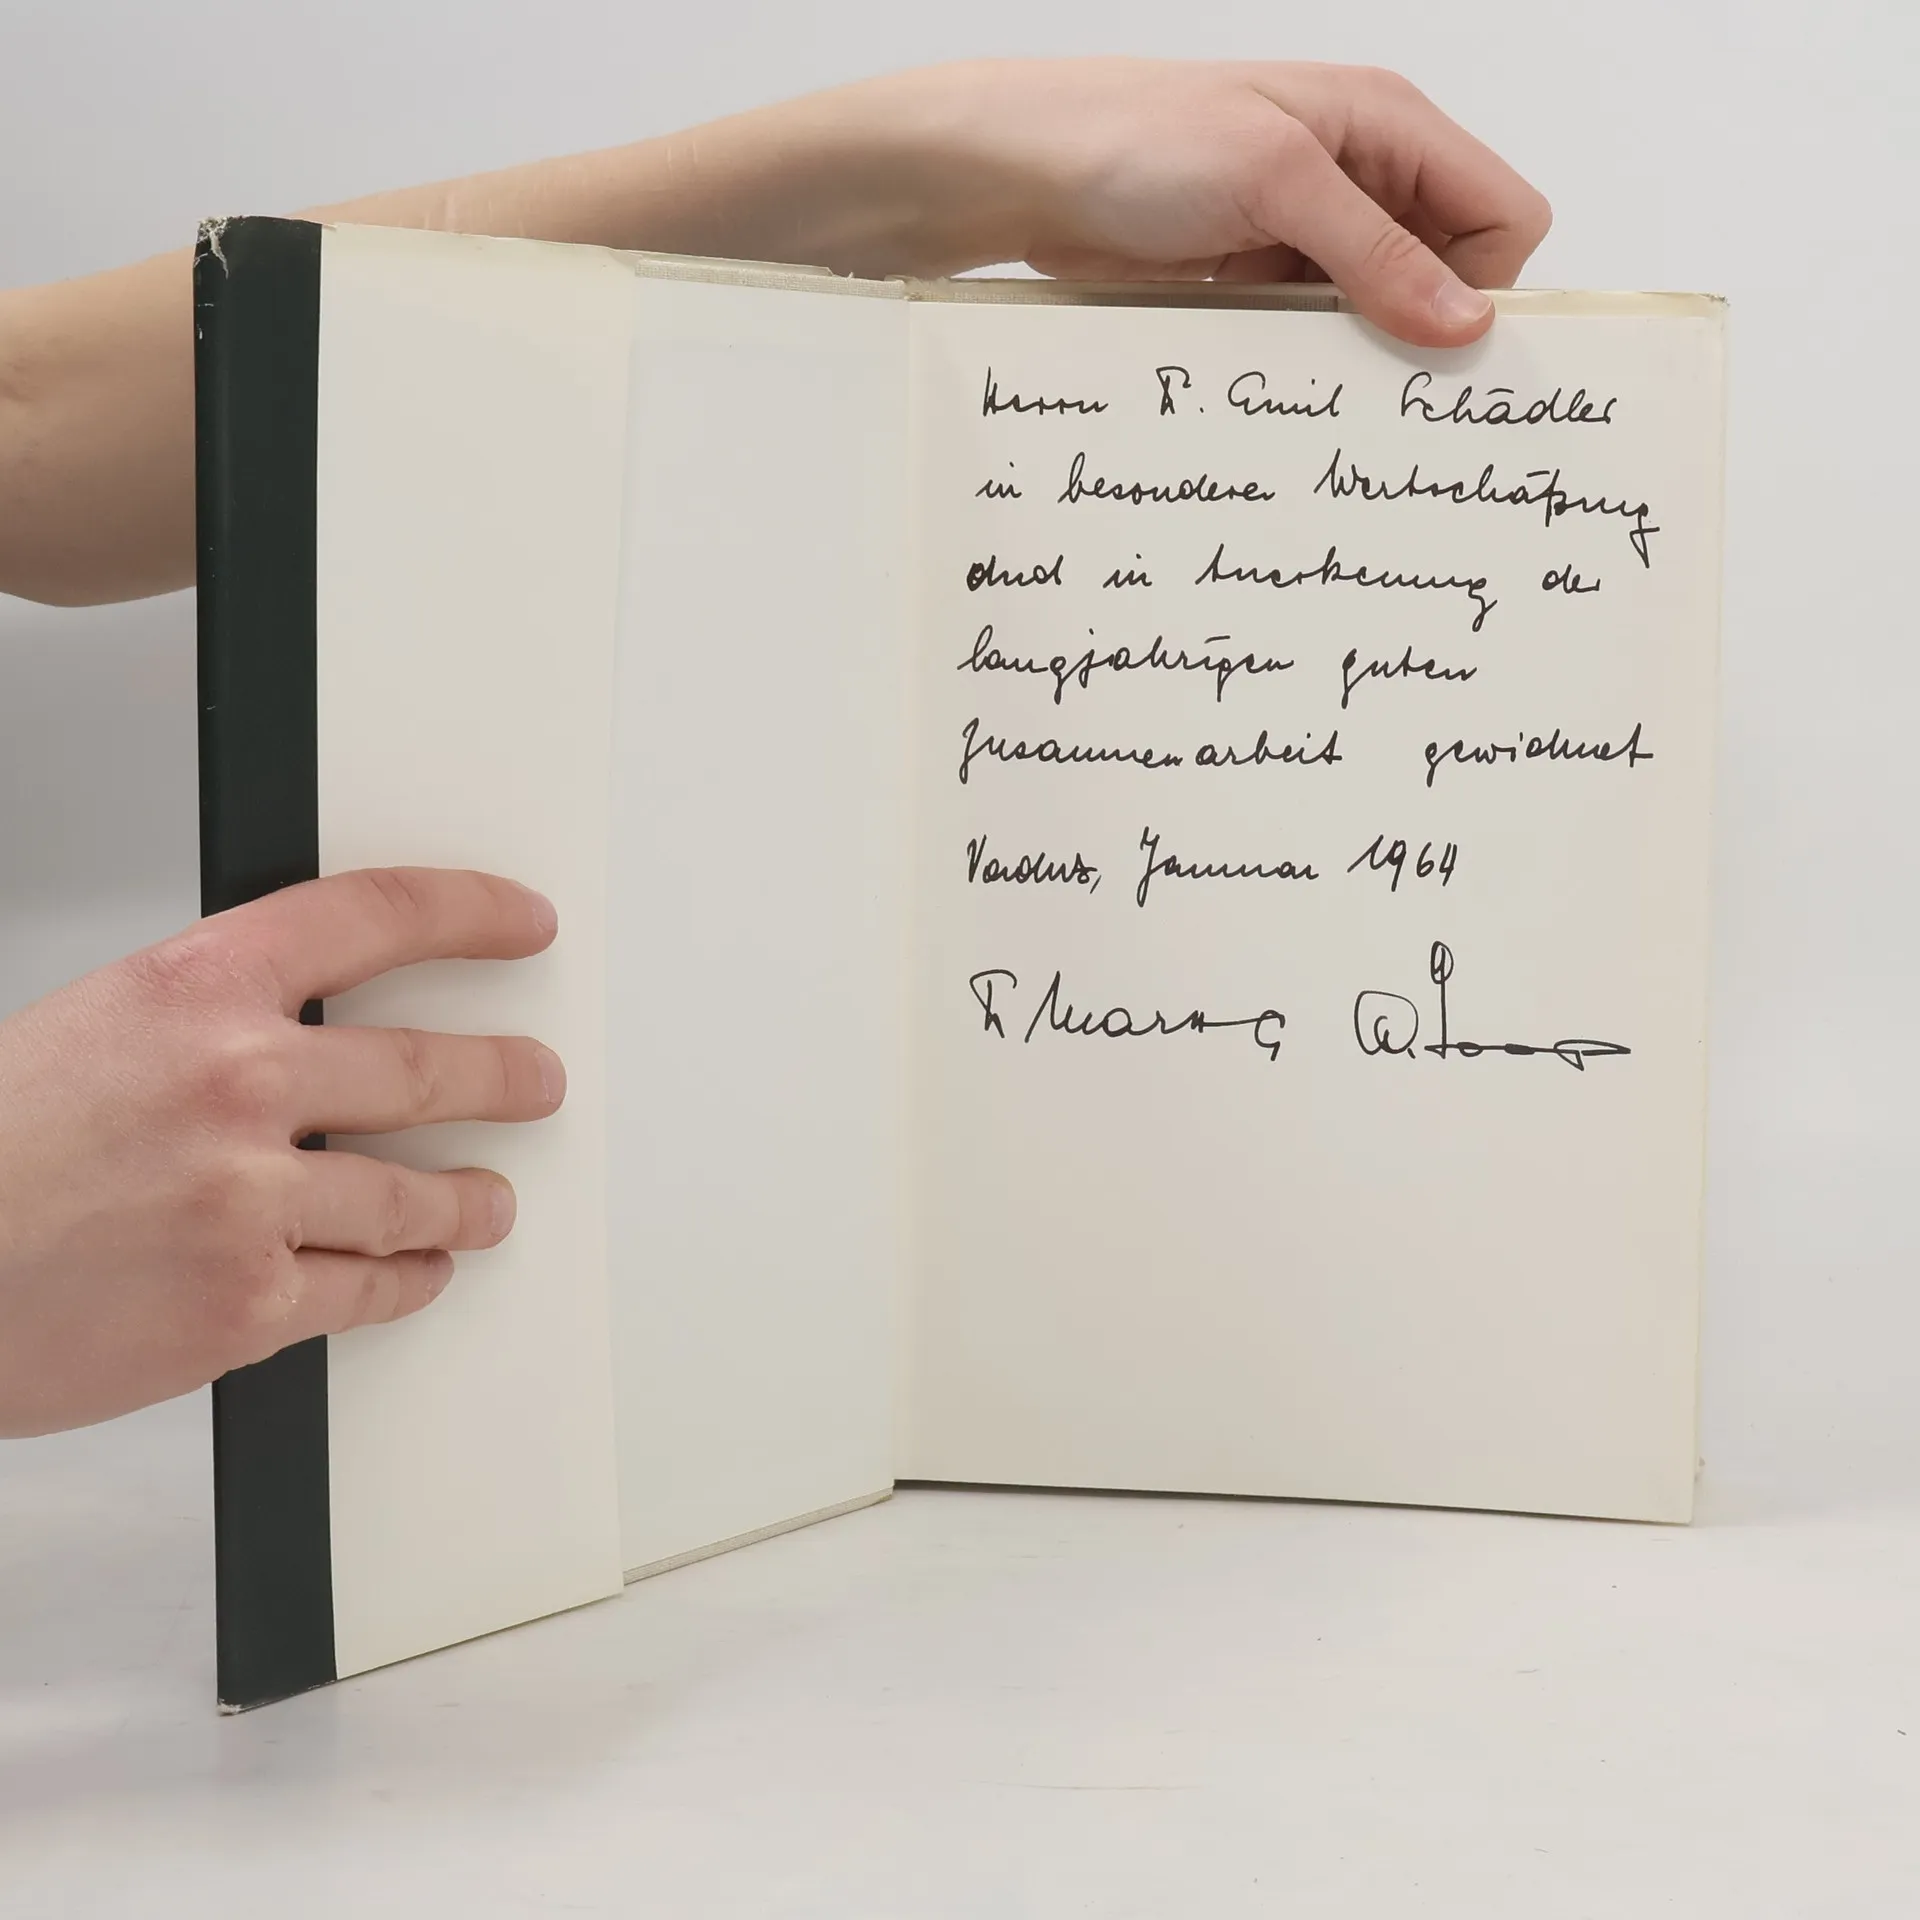 Herrn R. Emil Schädler
in besonderer Wertschätzung
und in Anerkennung der
langjährigen guten
Zusammenarbeit gewidmet
Vaduz, Januar 1964